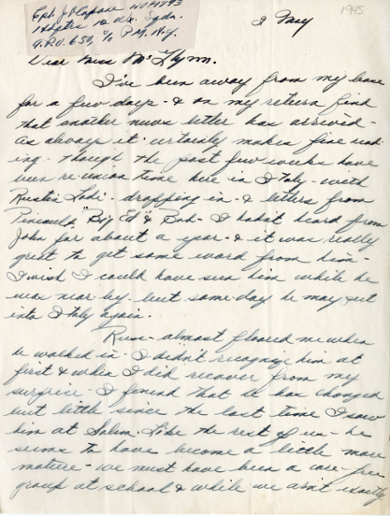 Cpl. J. Clapane
Hdqtrs 12 Air. Sqdn.
A.P.O. 650, c/o P.M. N.Y.
3 May
1945
Dear Miss McGlynn.
I've been away from my base
for a few days - & on my return find
that another news letter has arrived -
As always it certainly makes fine read-
ing - though the past few weeks have
been re-union time here in Italy - with
Rustin - dropping in - & letters from
"Big Ed" & Bob - I hadn't heard from
John for about a year - & it was really
great to get some word from him -
I wish I could have seen him while he
was near by - but some day he may get
into Italy again.
Russ - almost floored me when
he walked in - I didn't recognize him at
first & when I did recover from my
surprise - I found that he has changed
but little since the last time I saw
him at Salem. Like the rest of us - he
seems to have become a little more
mature - we must have been a care-free
group at school & while we aren't exactly